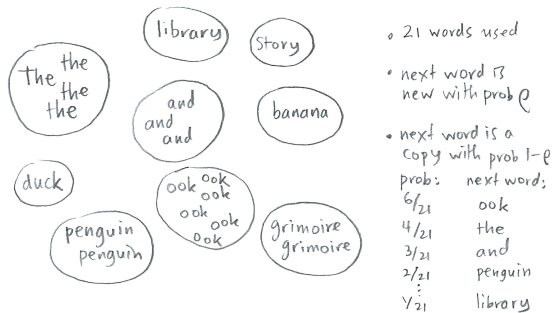 library
Story
The the
the
the
and
and
and
banana
duck
ook ook
ook
ook
ook
ook
penguin
penguin
grimoire
grimoire
• 21 words used
• next word is
new with prob ρ
• next word is a
copy with prob 1-ρ
prob: next word:
6/21 ook
4/21 the
3/21 and
2/21 penguin
⋮
1/21 library